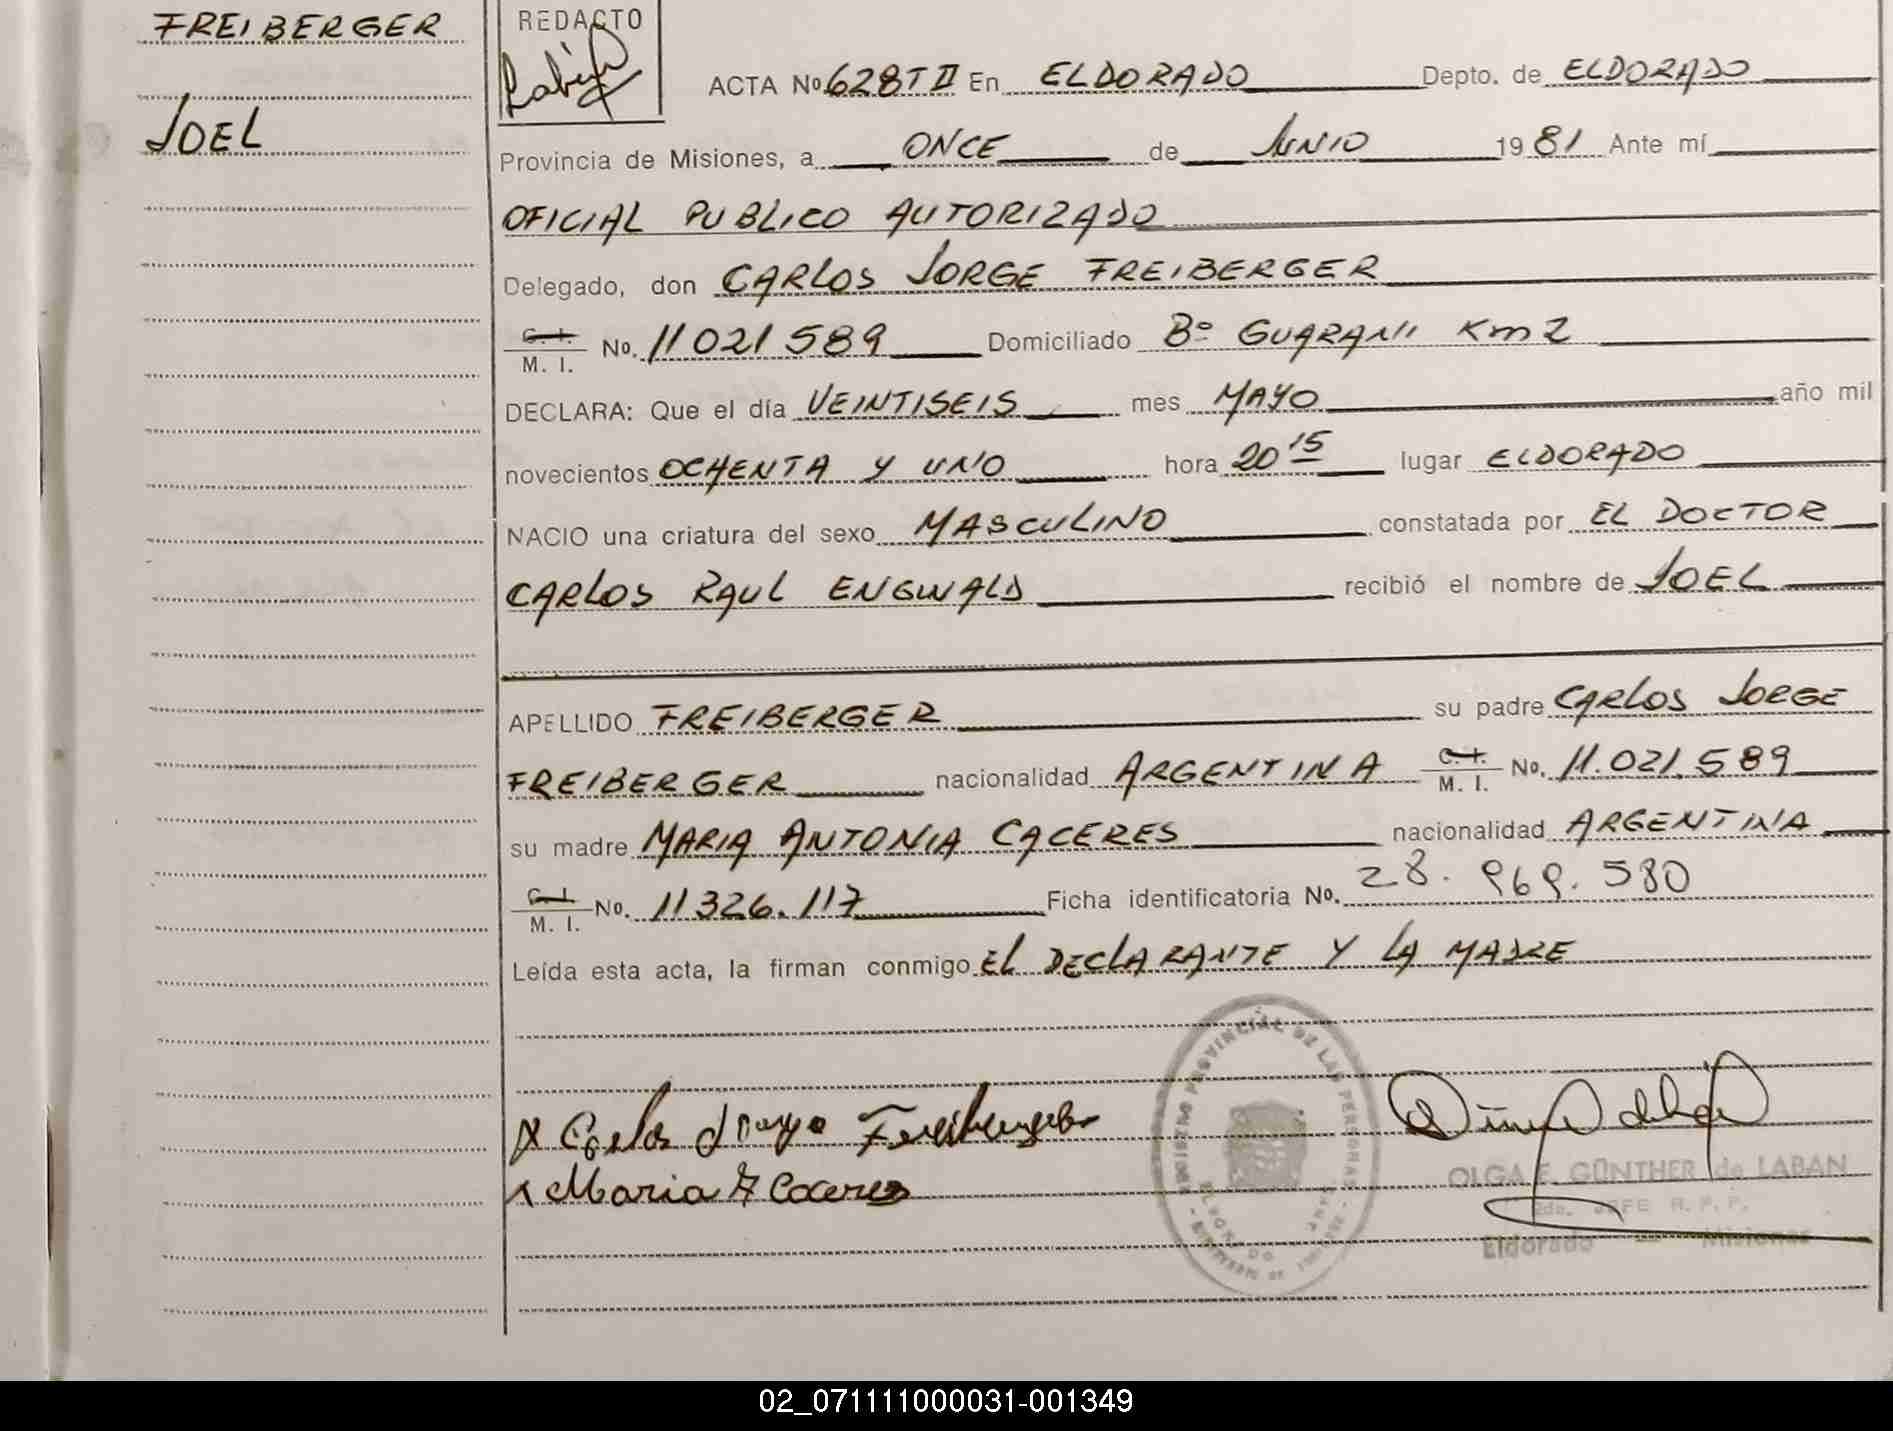 FREIBERGER
JOEL
REDACTO
ACTA No 628 T II En ELDORADO Depto. de ELDORADO
Provincia de Misiones, a ONCE de JUNIO 1981 Ante mí
OFICIAL PUBLICO AUTORIZADO
Delegado, don CARLOS JORGE FREIBERGER
C. I. M. I. No. 11021589 Domiciliado Bº GUARANII Km 2
DECLARA: Que el día VEINTISEIS mes MAYO año mil
novecientos OCHENTA Y UNO hora 20 15 lugar ELDORADO
NACIO una criatura del sexo MASCULINO constatada por EL DOCTOR
CARLOS RAUL ENGWALD recibió el nombre de JOEL
APELLIDO FREIBERGER su padre CARLOS JORGE
FREIBERGER nacionalidad ARGENTINA C. I. M. I. No. 11.021.589
su madre MARIA ANTONIA CACERES nacionalidad ARGENTINA
C. I. M. I. No. 11326.117 Ficha identificatoria No. 28.969.580
Leída esta acta, la firman conmigo EL DECLARANTE Y LA MADRE
x Carlos Jorge Freiberger
x Maria A Caceres
PROVINCIAL DE LAS PERSONAS
ELDORADO
OLGA E. GÜNTHER de LABAN
2da. JEFE R. P. P.
Eldorado — Misiones
02_071111000031-001349